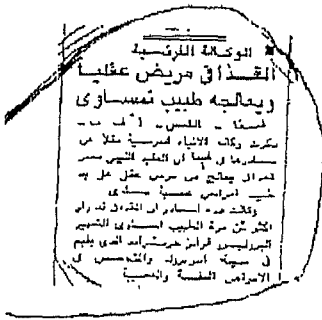 الوكالة الفرنسية
القذافي مريض عقليا
ويعالجه طبيب نمساوي
فيينا - القبس - أ ف ب -
ذكرت وكالة الانباء الفرنسية نقلا عن
مصادرها في فيينا أن العقيد الليبي معمر
القذافي يعالج من مرض عقلي على يد
طبيب امراض عصبية نمساوي
وقالت هذه المصادر ان القذافي قد زار
اكثر من مرة الطبيب النمساوي الشهير
البروفيسور الذي يقيم
في مدينة والمتخصص في
الامراض النفسية والعصبية